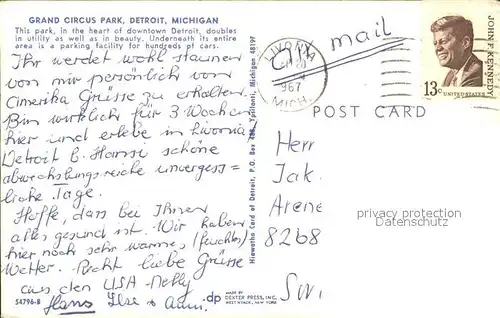 GRAND CIRCUS PARK, DETROIT, MICHIGAN
This park, in the heart of downtown Detroit, doubles
in utility as well as in beauty. Underneath its entire
area is a parking facility for hundreds of cars.
Ihr werdet wohl staunen
von mir persönlich von
Amerika Grüsse zu erhalten.
Bin wirklich für 3 Wochen
hier und erlebe in Livonia/
Detroit b. Hansi schöne
abwechslungsreiche unvergess=
liche Tage.
Hoffe, dass bei Ihnen
alles gesund ist. Wir haben
hier noch sehr warmes (feuchtes)
Wetter. Recht liebe Grüsse
aus den USA Nelly
Hans Ilse +
54796-B
dp
MADE BY
DEXTER PRESS, INC.
WEST NYACK, NEW YORK
Hiawatha Card of Detroit, P.O. Box 488, Ypsilanti, Michigan 48197
air mail
LIVONIA
1967
MICH.
JOHN F. KENNEDY
13c
UNITED STATES
POST CARD
Herr
Jak.
8268
privacy protection
AnsichtskartenVersand.com